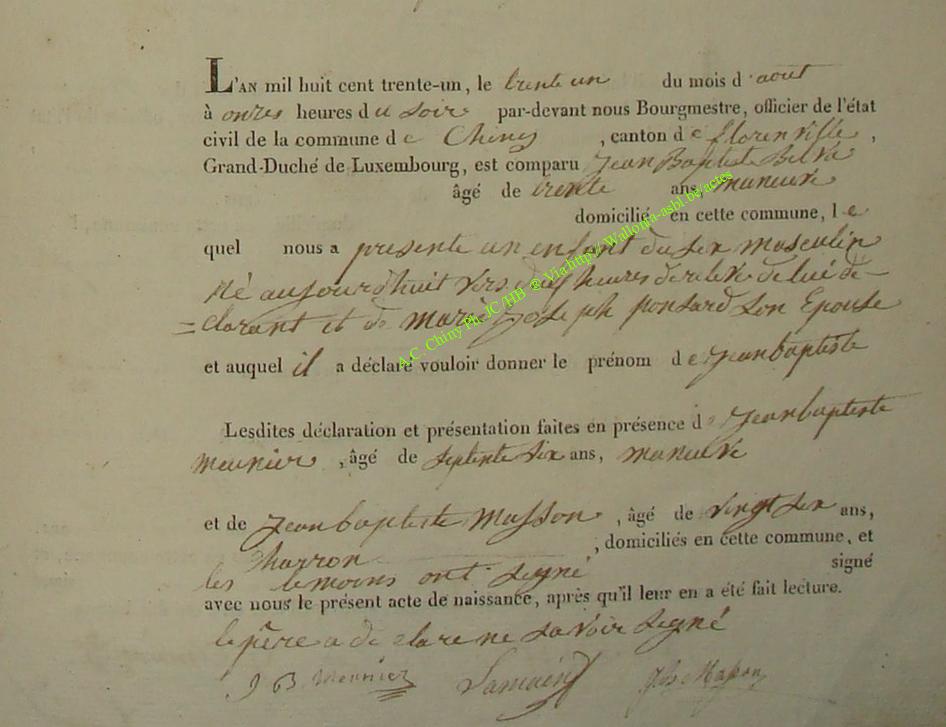 L'AN mil huit cent trente-un, le trente un du mois d'août
à onzes heures du soir par-devant nous Bourgmestre, officier de l'état
civil de la commune de Chiny, canton de florenville,
Grand-Duché de Luxembourg, est comparu Jean Baptiste
âgé de trente ans, maneuve
domicilié en cette commune, le
quel nous a presente un enfant du sex masculin
Né aujourdhuit vers heures de de lui dé-
=clarant et de marie Joseph ponsard son Epouse
et auquel il a déclaré vouloir donner le prénom de Jeanbaptiste
Lesdites déclaration et présentation faites en présence de Jeanbaptiste
meunier, âgé de septente six ans, maneuve
et de Jeanbaptiste Masson, âgé de vingt six ans,
charron, domiciliés en cette commune, et
les temoins ont signé signé
avec nous le présent acte de naissance, après qu'il leur en a été fait lecture.
le père a declare ne savoir signé
J B Meunier Lamwin Masson
A.C. Chiny Ph. JC /HB ® Via http:// Wallonia-asbl.be/actes